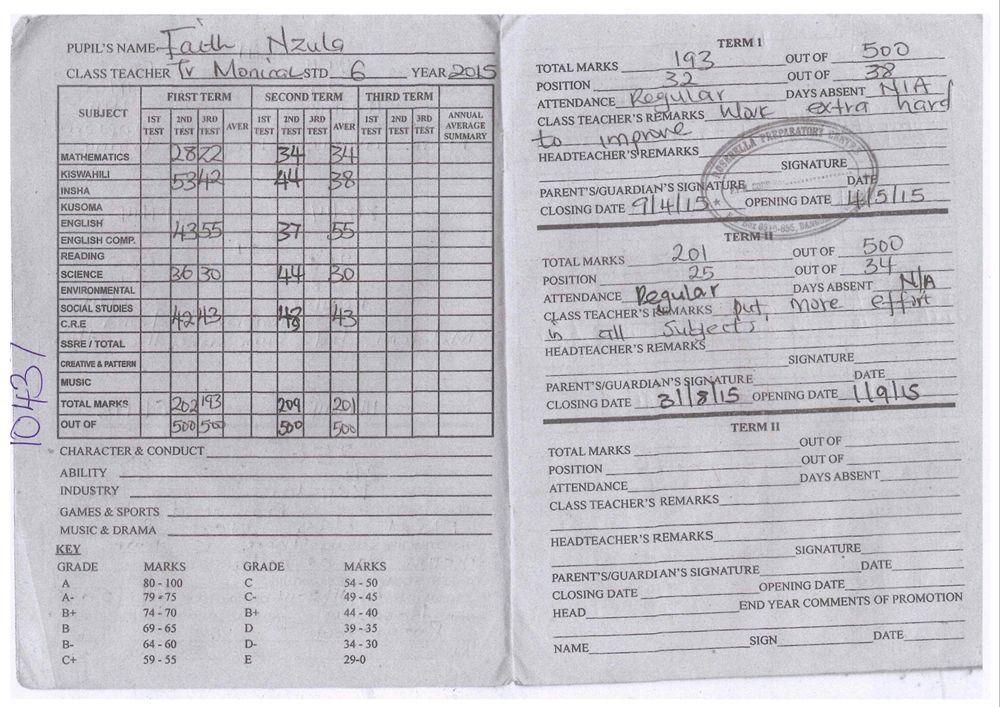 PUPIL'S NAME Faith Nzula
CLASS TEACHER Tr Monica STD 6 YEAR 2015
SUBJECT FIRST TERM SECOND TERM THIRD TERM
1ST TEST 2ND TEST 3RD TEST AVER 1ST TEST 2ND TEST 3RD TEST AVER 1ST TEST 2ND TEST 3RD TEST ANNUAL AVERAGE SUMMARY
MATHEMATICS 28 22 34 34
KISWAHILI 53 42 44 38
INSHA
KUSOMA
ENGLISH 43 55 37 55
ENGLISH COMP.
READING
SCIENCE 36 30 44 30
ENVIRONMENTAL
SOCIAL STUDIES 42 43 43
C.R.E
SSRE / TOTAL
CREATIVE & PATTERN
MUSIC
TOTAL MARKS 202 193 209 201
OUT OF 500 500 500 500
CHARACTER & CONDUCT
ABILITY
INDUSTRY
GAMES & SPORTS
MUSIC & DRAMA
KEY
GRADE MARKS GRADE MARKS
A 80 - 100 C 54 - 50
A- 79 - 75 C- 49 - 45
B+ 74 - 70 B+ 44 - 40
B 69 - 65 D 39 - 35
B- 64 - 60 D- 34 - 30
C+ 59 - 55 E 29-0
10437
TERM I
TOTAL MARKS 193 OUT OF 500
POSITION 32 OUT OF 38
ATTENDANCE Regular DAYS ABSENT N/A
CLASS TEACHER'S REMARKS Work extra hard
to improve
HEADTEACHER'S REMARKS
SIGNATURE
PARENT'S/GUARDIAN'S SIGNATURE DATE
CLOSING DATE 9/4/15 OPENING DATE 4/5/15
PREPARATORY
TERM II
TOTAL MARKS 201 OUT OF 500
POSITION 25 OUT OF 34
ATTENDANCE Regular DAYS ABSENT N/A
CLASS TEACHER'S REMARKS Put more effort
in all subjects.
HEADTEACHER'S REMARKS
SIGNATURE
PARENT'S/GUARDIAN'S SIGNATURE DATE
CLOSING DATE 31/8/15 OPENING DATE 1/9/15
TERM II
TOTAL MARKS OUT OF
POSITION OUT OF
ATTENDANCE DAYS ABSENT
CLASS TEACHER'S REMARKS
HEADTEACHER'S REMARKS
SIGNATURE
PARENT'S/GUARDIAN'S SIGNATURE DATE
CLOSING DATE OPENING DATE
HEAD END YEAR COMMENTS OF PROMOTION
NAME SIGN DATE